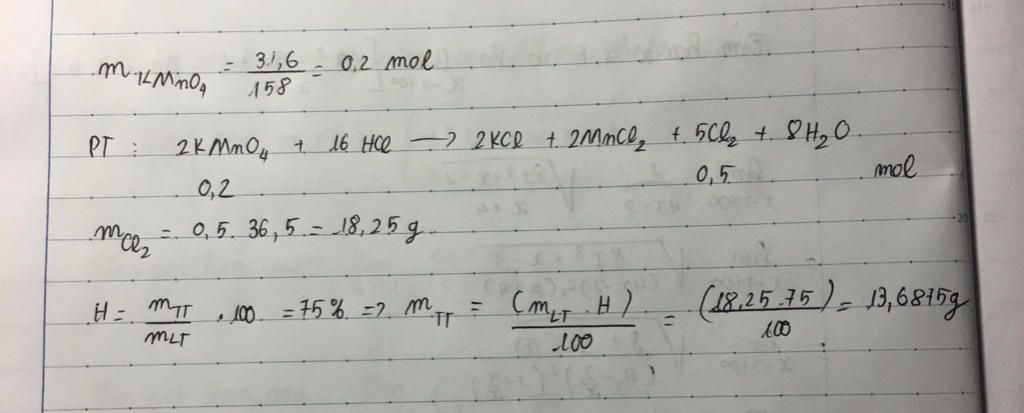 m KMnO₄ = 31,6/158 = 0,2 mol
PT : 2KMnO₄ + 16 HCl → 2KCl + 2MnCl₂ + 5Cl₂ + 8H₂O
0,2 0,5 mol
m Cl₂ = 0,5. 36,5 = 18,25 g
H = m TT / m LT . 100 = 75% => m TT = (m LT . H)/100 = (18,25.75)/100 = 13,6875g